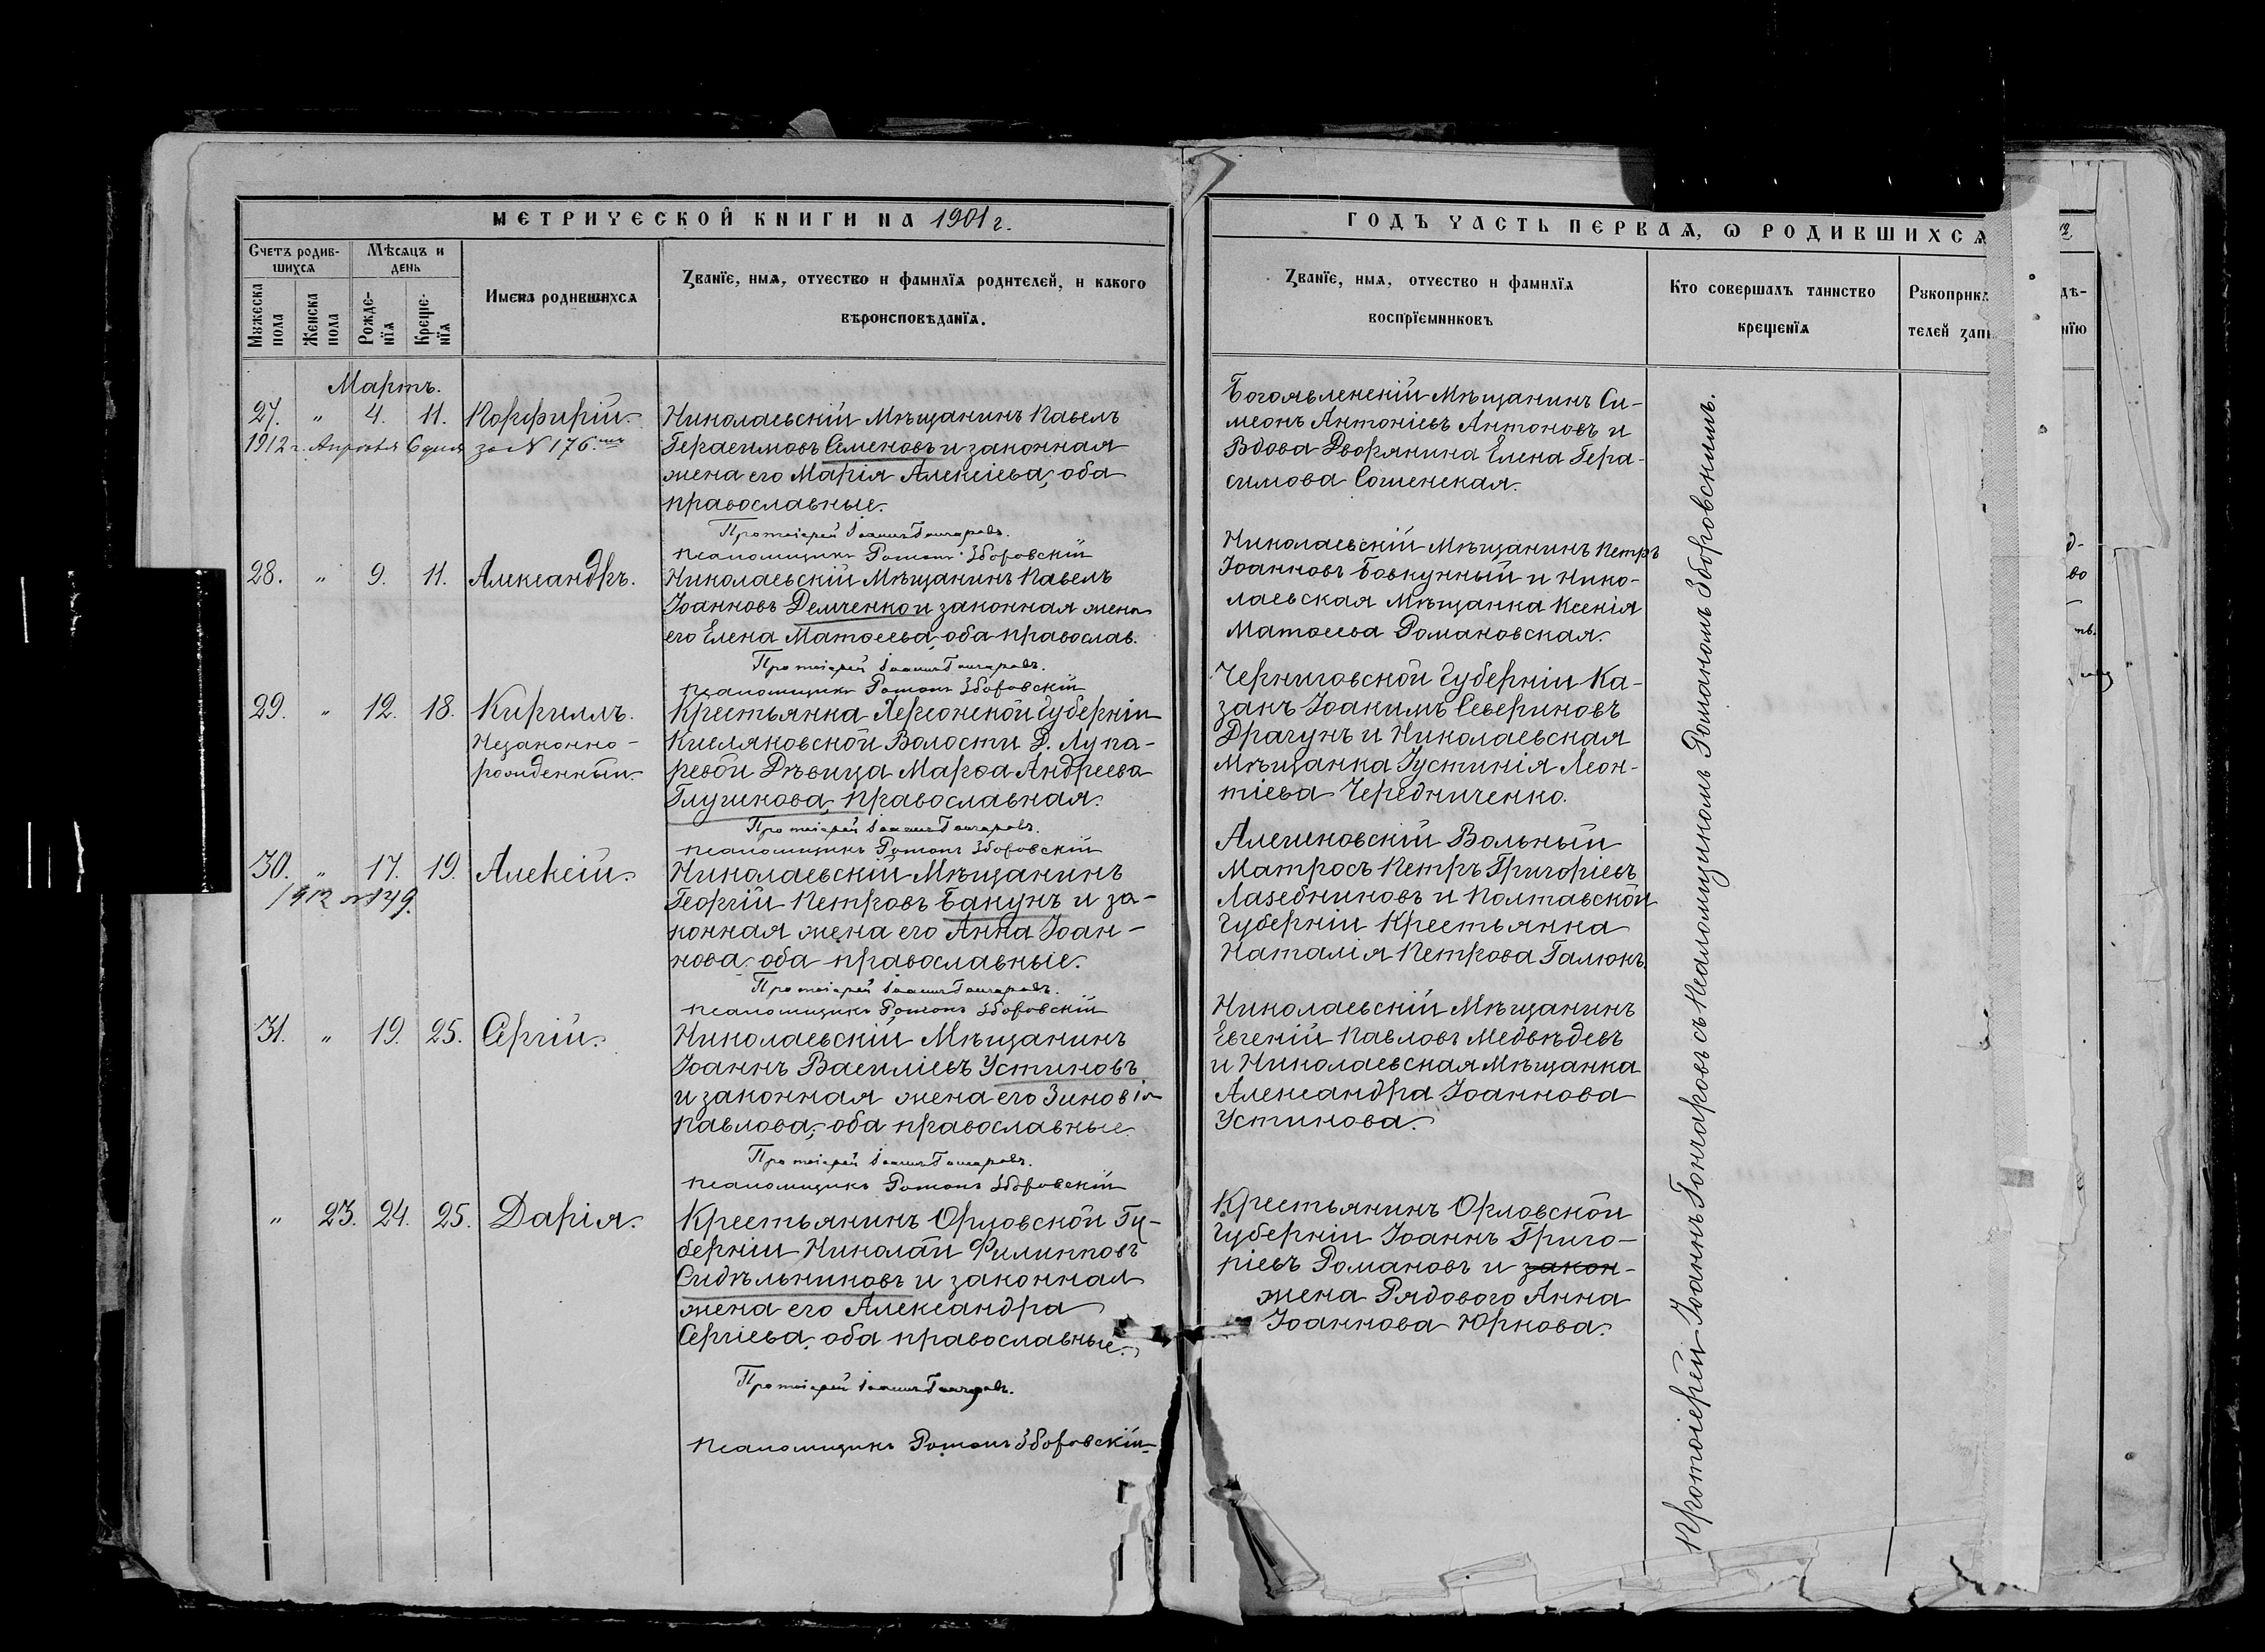 МЕТРИЧЕСКОЙ КНИГИ НА 1901 г.
Счетъ родившихся
Мѣсяцъ и день
Имена родившихся
Званїе, имя, отчество и фамилїя родителей, и какого
вѣроисповѣданїя.
Мужеска пола
Женска пола
Рожденїя
Крещенїя
Мартъ.
27. " 4. 11. Порфирій.
1912 г. Апрѣля 6 дня за № 176.
Николаевскій Мѣщанинъ Павелъ
Герасимовъ Семеновъ и законная
жена его Марія Алексіева, оба
православные.
Протоіерей Іоаннъ Гончаровъ.
Псаломщикъ Романъ Зборовскій
28. " 9. 11. Александръ.
Николаевскій Мѣщанинъ Павелъ
Іоанновъ Демченко и законная жена
его Елена Матѳеева, оба православ.
Протоіерей Іоаннъ Гончаровъ.
Псаломщикъ Романъ Зборовскій
29. " 12. 18. Кириллъ.
Незаконно-
рожденный.
Крестьянка Херсонской Губерніи
Кисляковской Волости Д. Лупа-
ревой Дѣвица Марѳа Андреева
Глушкова, православная.
Протоіерей Іоаннъ Гончаровъ.
Псаломщикъ Романъ Зборовскій
30. " 17. 19. Алексій.
1912 №149.
Николаевскій Мѣщанинъ
Георгій Петровъ Бакунъ и за-
конная жена его Анна Іоан-
нова, оба православные.
Протоіерей Іоаннъ Гончаровъ.
Псаломщикъ Романъ Зборовскій
31. " 19. 25. Сергій.
Николаевскій Мѣщанинъ
Іоаннъ Василіевъ Устиновъ
и законная жена его Зиновія
Павлова, оба православные.
Протоіерей Іоаннъ Гончаровъ.
Псаломщикъ Романъ Зборовскій
" 23. 24. 25. Дарія.
Крестьянинъ Орловской Гу-
берніи Николай Филипповъ
Сидѣльниковъ и законная
жена его Александра
Сергіева, оба православные.
Протоіерей Іоаннъ Гончаровъ.
Псаломщикъ Романъ Зборовскій
ГОДЪ ЧАСТЬ ПЕРВАЯ, Ѡ РОДИВШИХСЯ
Званїе, имя, отчество и фамилїя
воспрїемниковъ
Кто совершалъ таинство
крещенїя
Рукоприкл
телей запи
Богоявленскій Мѣщанинъ Си-
меонъ Антоніевъ Антоновъ и
Вдова Дворянина Елена Гера-
симова Сошенская.
Николаевскій Мѣщанинъ Петръ
Іоанновъ Бовкунный и Нико-
лаевская Мѣщанка Ксенія
Матѳеева Романовская.
Черниговской Губерніи Ка-
закъ Іоакимъ Севериновъ
Драгунъ и Николаевская
Мѣщанка Іустинія Леон-
тіева Чередниченко.
Алешковскій Вольный
Матросъ Петръ Григоріевъ
Лазебниковъ и Полтавской
Губерніи Крестьянка
Наталія Петрова Галюкъ.
Николаевскій Мѣщанинъ
Евгеній Павловъ Медвѣдевъ
и Николаевская Мѣщанка
Александра Іоаннова
Устинова.
Крестьянинъ Орловской
Губерніи Іоаннъ Григо-
ріевъ Романовъ и закон-
жена Рядового Анна
Іоаннова Юркова.
Протоіерей Іоаннъ Гончаровъ съ Псаломщикомъ Романомъ Зборовскимъ.